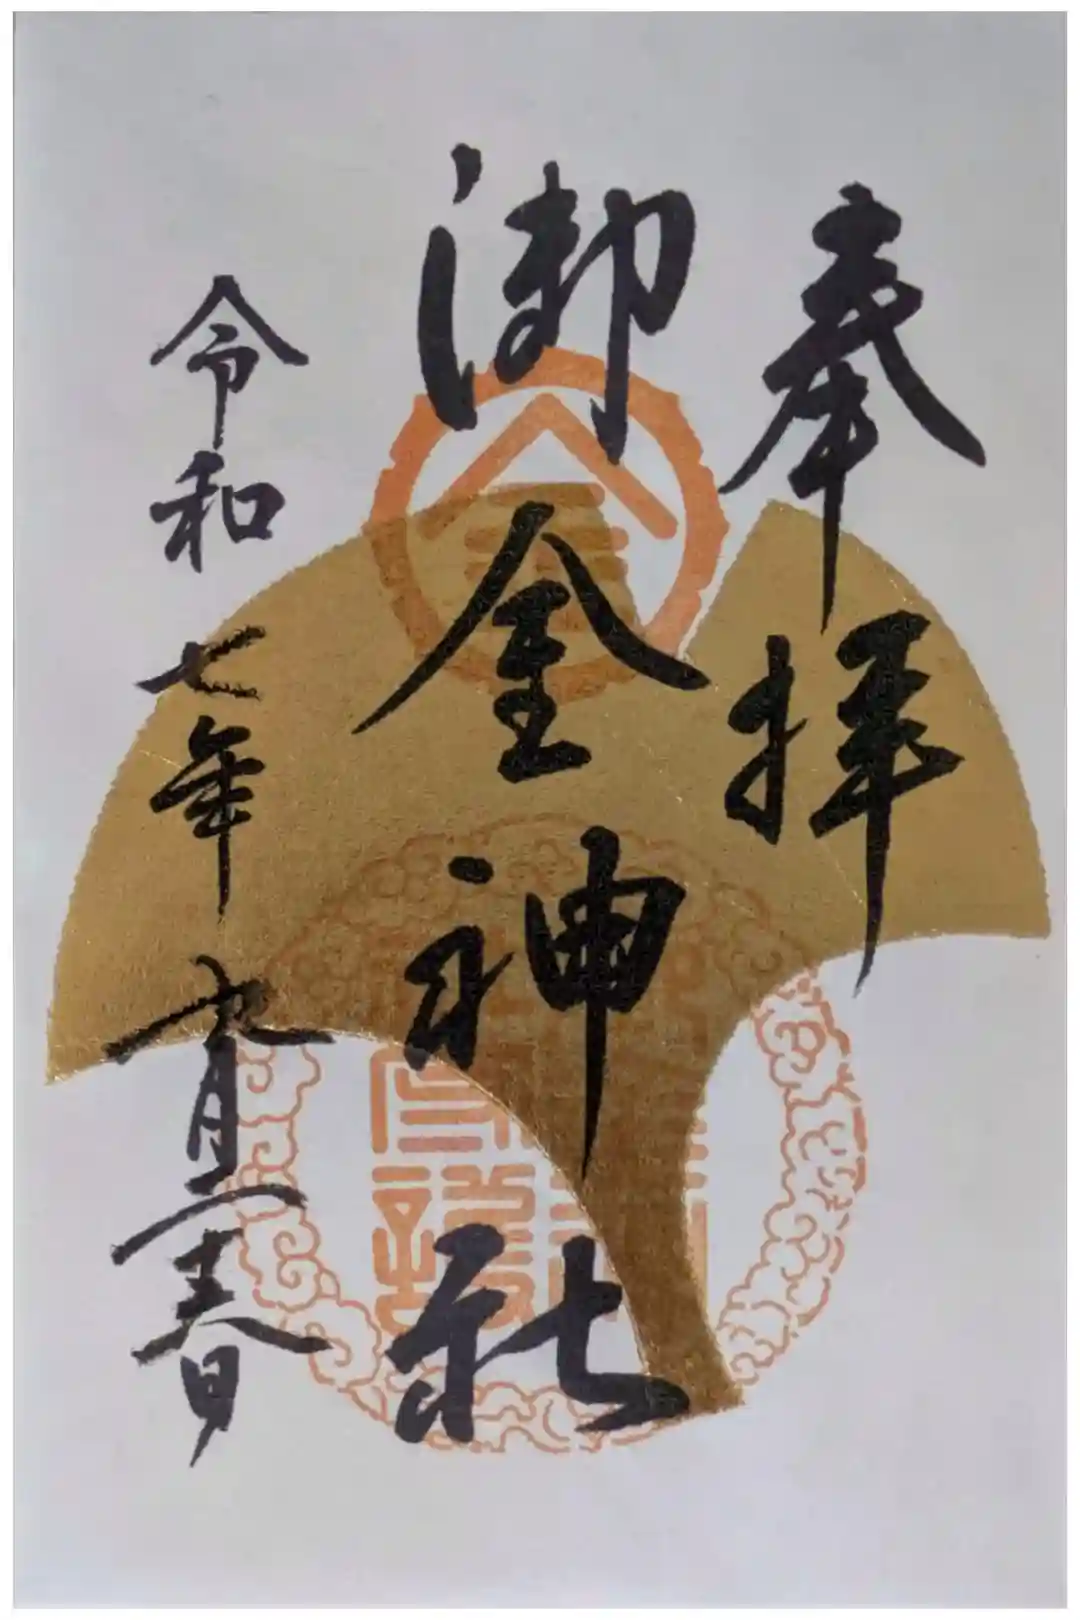 奉拝
御金神社
令和七年 月 日